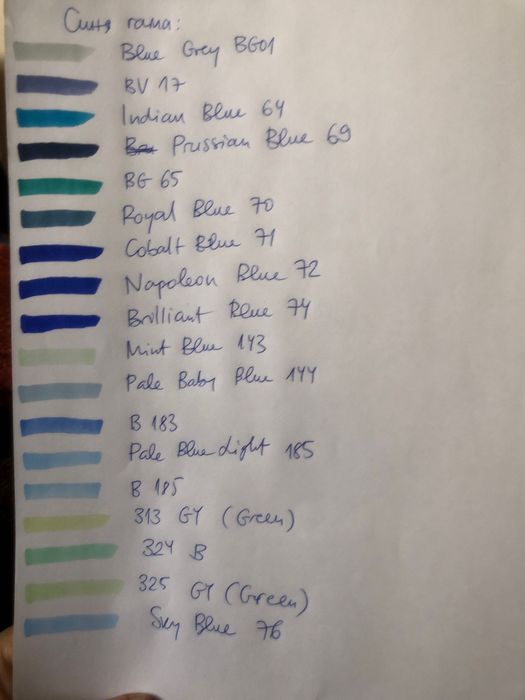 Синя гама:
Blue Grey BG01
BV 17
Indian Blue 64
Prussian Blue 69
BG 65
Royal Blue 70
Cobalt Blue 71
Napoleon Blue 72
Brilliant Blue 74
Mint Blue 143
Pale Baby Blue 144
B 183
Pale Blue Light 185
B 185
313 GY (Green)
324 B
325 GY (Green)
Sky Blue 76